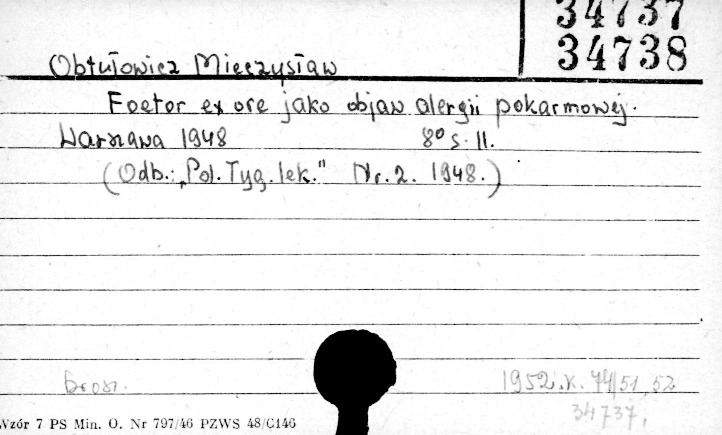 34737
34738
Obtułowicz Mieczysław
Foetor ex ore jako objaw alergii pokarmowej.
Warszawa 1948 8° s. 11.
(Odb.: "Pol. Tyg. lek." Nr. 2. 1948.)
brosz. 1952.K. 44/51, 52
34737,
Wzór 7 PS Min. O. Nr 797/46 PZWS 48/C146